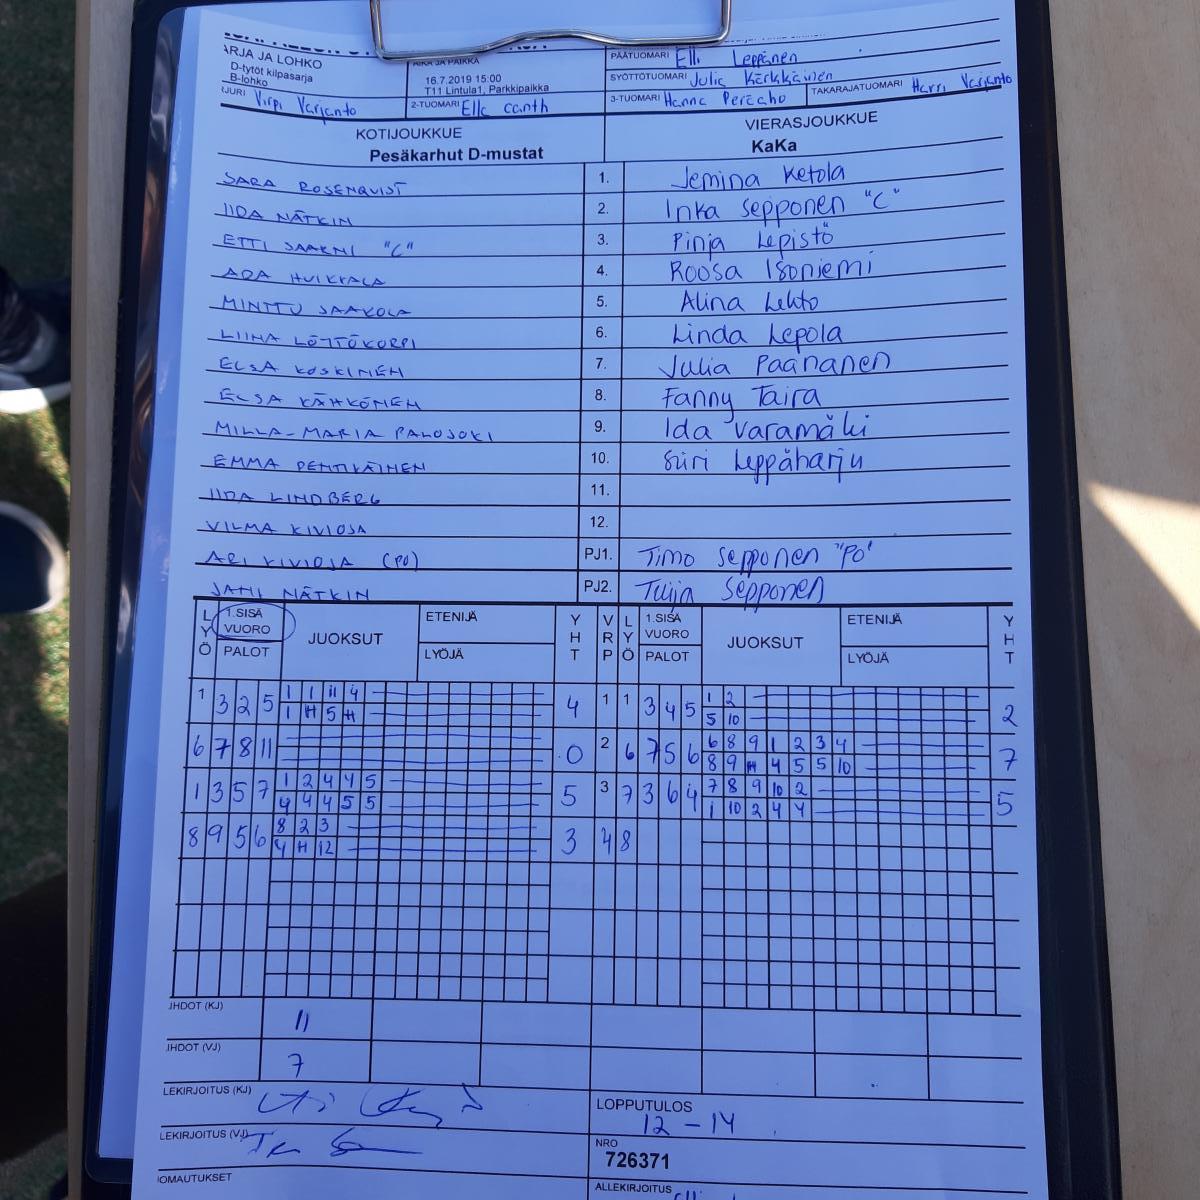 ARJA JA LOHKO
D-tytöt kilpasarja
B-lohko
AIKA JA PAIKKA
16.7.2019 15:00
T11 Lintula1, Parkkipaikka
PÄÄTUOMARI Elli Leppänen
SYÖTTÖTUOMARI Julia Kärkkäinen
JURI Virpi Varjanto
2-TUOMARI Ella canth
3-TUOMARI Hanna Peräaho
TAKARAJATUOMARI Harri Varjanto
KOTIJOUKKUE
Pesäkarhut D-mustat
VIERASJOUKKUE
KaKa
SARA ROSENQVIST 1. Jemina Ketola
IIDA NÄTKIN 2. Inka Sepponen "C"
ETTI SAARNI "C" 3. Pinja Lepistö
ADA HUIKKALA 4. Roosa Isoniemi
MINTTU JAAKOLA 5. Alina Lehto
LIINA LÖTTÖKORPI 6. Linda Lepola
ELSA KOSKINEN 7. Julia Paananen
ELSA KÄHKÖNEN 8. Fanny Taira
MILLA-MARIA PALOJOKI 9. Ida Varamäki
EMMA PENTIKÄINEN 10. Siiri Leppäharju
IIDA LINDBERG 11.
VILMA KIVIOJA 12.
ARI KIVIOJA (PO) PJ1. Timo Sepponen "PO"
JANI NÄTKIN PJ2. Tuija Sepponen
LYÖ 1.SISÄ VUORO PALOT JUOKSUT ETENIJÄ LYÖJÄ YHT VRP LYÖ 1.SISÄ VUORO PALOT JUOKSUT ETENIJÄ LYÖJÄ YHT
1 3 2 5 1 1 11 4 4 1 1 3 4 5 1 2 2
1 H 5 H 5 10
6 7 8 11 0 2 6 7 5 6 6 8 9 1 2 3 4 7
8 9 H 4 5 5 10
1 3 5 7 1 2 4 4 5 5 3 7 3 6 4 7 8 9 10 2 5
4 4 4 5 5 1 10 2 4 4
8 9 5 6 8 2 3 3 4 8
4 H 12
IHDOT (KJ) 11
IHDOT (VJ) 7
LEKIRJOITUS (KJ)
LOPPUTULOS
12 - 14
LEKIRJOITUS (VJ)
NRO
726371
IOMAUTUKSET
ALLEKIRJOITUS